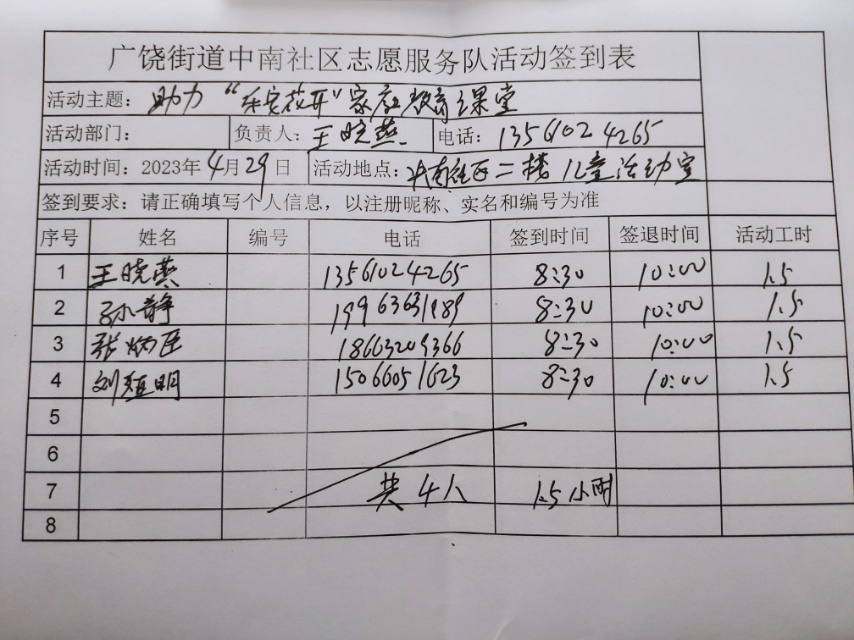 广饶街道中南社区志愿服务队活动签到表
活动主题： 助力“乐安花开”家庭教育课堂
活动部门： 负责人：王晓燕 电话：13561024265
活动时间：2023年4月29日 活动地点：中南社区二楼儿童活动室
签到要求：请正确填写个人信息，以注册昵称、实名和编号为准
序号 姓名 编号 电话 签到时间 签退时间 活动工时
1 王晓燕 13561024265 8:30 10:00 1.5
2 孙静 19963631989 8:30 10:00 1.5
3 张炳臣 18663209366 8:30 10:00 1.5
4 刘延明 15066051623 8:30 10:00 1.5
5
6
7 共4人 1.5小时
8